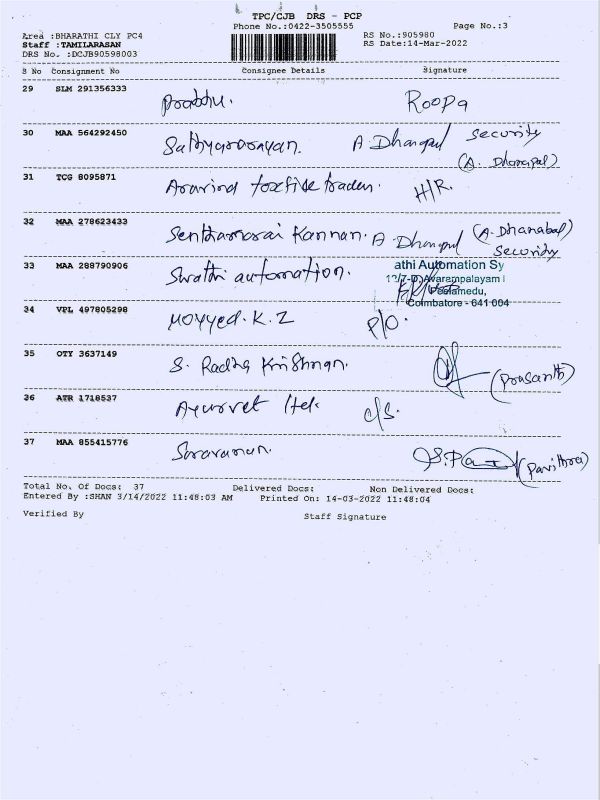 TPC/CJB DRS - PCP
Phone No.:0422-3505555 Page No.:3
Area :BHARATHI CLY PC4 RS No.:905980
Staff :TAMILARASAN RS Date:14-Mar-2022
DRS No. :DCJB90598003
S No Consignment No Consignee Details Signature
29 SLM 291356333 Prabhu. Roopa
30 MAA 564292450 Sathyanarayan. A Dhanpal Security
(A. Dhanapal)
31 TCG 8095871 Aravind textile trader. H/R.
32 MAA 278623433 Senthamarai Kannan. A Dhanpal (A-Dhanabal)
Security
33 MAA 288790906 Swathi automation. athi Automation Sy
Avarampalayam
Peelamedu,
Coimbatore - 641 004
34 VPL 497805298 Moyyed. K. Z P/O.
35 OTY 3637149 S. Radha Krishnan. (Prasanth)
36 ATR 1718537 Ayurvet c/s.
37 MAA 855415776 Saravanan. (Pavithra)
Total No. Of Docs: 37 Delivered Docs: Non Delivered Docs:
Entered By :SHAN 3/14/2022 11:48:03 AM Printed On: 14-03-2022 11:48:04
Verified By Staff Signature